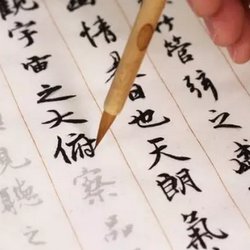 管弦之盛
幽情是日也天朗氣
觀宇宙之大俯察品
聽之